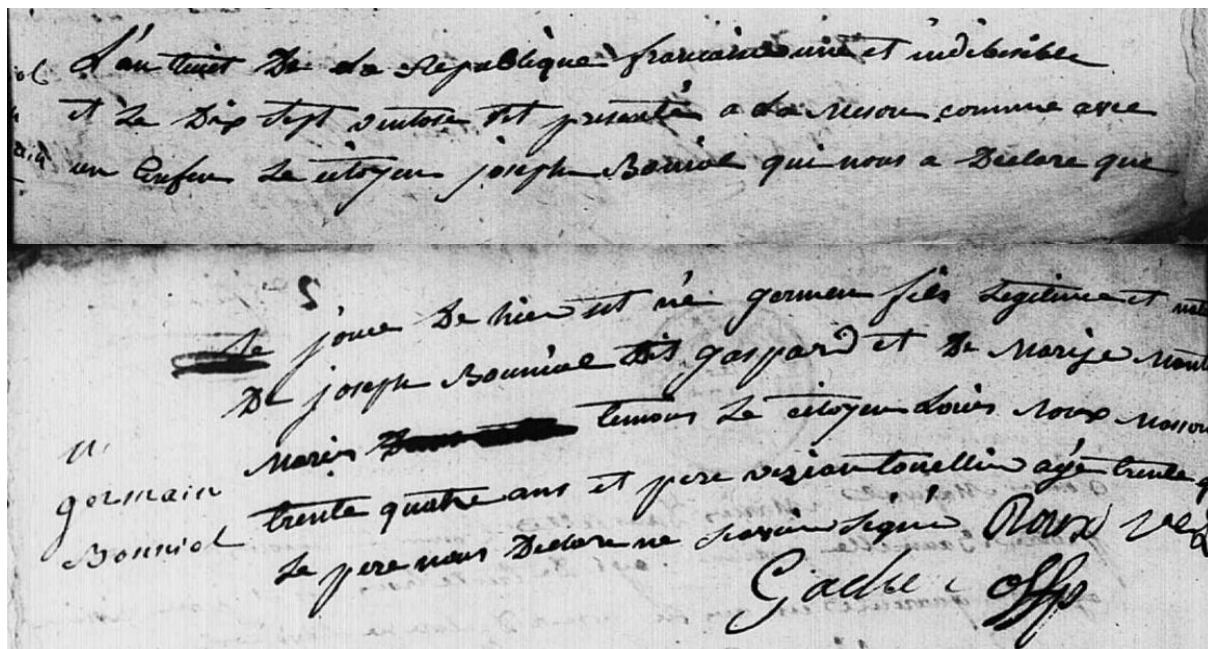 L'an huit De La Republique francaise une et indibisible
et Le Dix sept ventose est presenté a La meson commune avec
un Enfen Le citoyen joseph Boniol qui nous a Declare que
2
jour De hier est né germen fils Legitime et
De joseph Bouniol dit gaspard et De Marige
Mariés temoins Le citoyen Louis Roux
N.
germain trente quatre ans et pere agé trente
Bonniol Le pere nous Declare ne savoir signé Roux
Gache offp